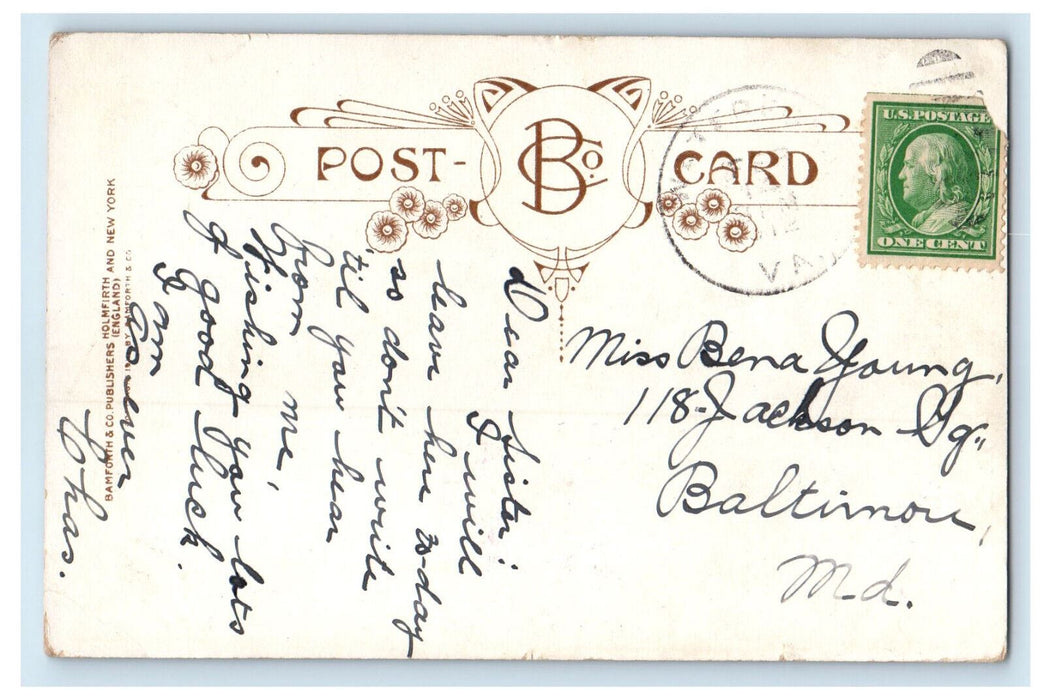 POST-
BCo.
CARD
U.S. POSTAGE
ONE CENT
VA
BAMFORTH & CO. PUBLISHERS HOLMFIRTH AND NEW YORK
(ENGLAND)
BY BAMFORTH & CO.
Dear Sister:
I will
leave here to-day
so don't write
'til you hear
from me,
Wishing you lots
of good luck.
I am
as ever
Chas.
Miss Bena Young,
118-Jackson Sq.,
Baltimore,
Md.